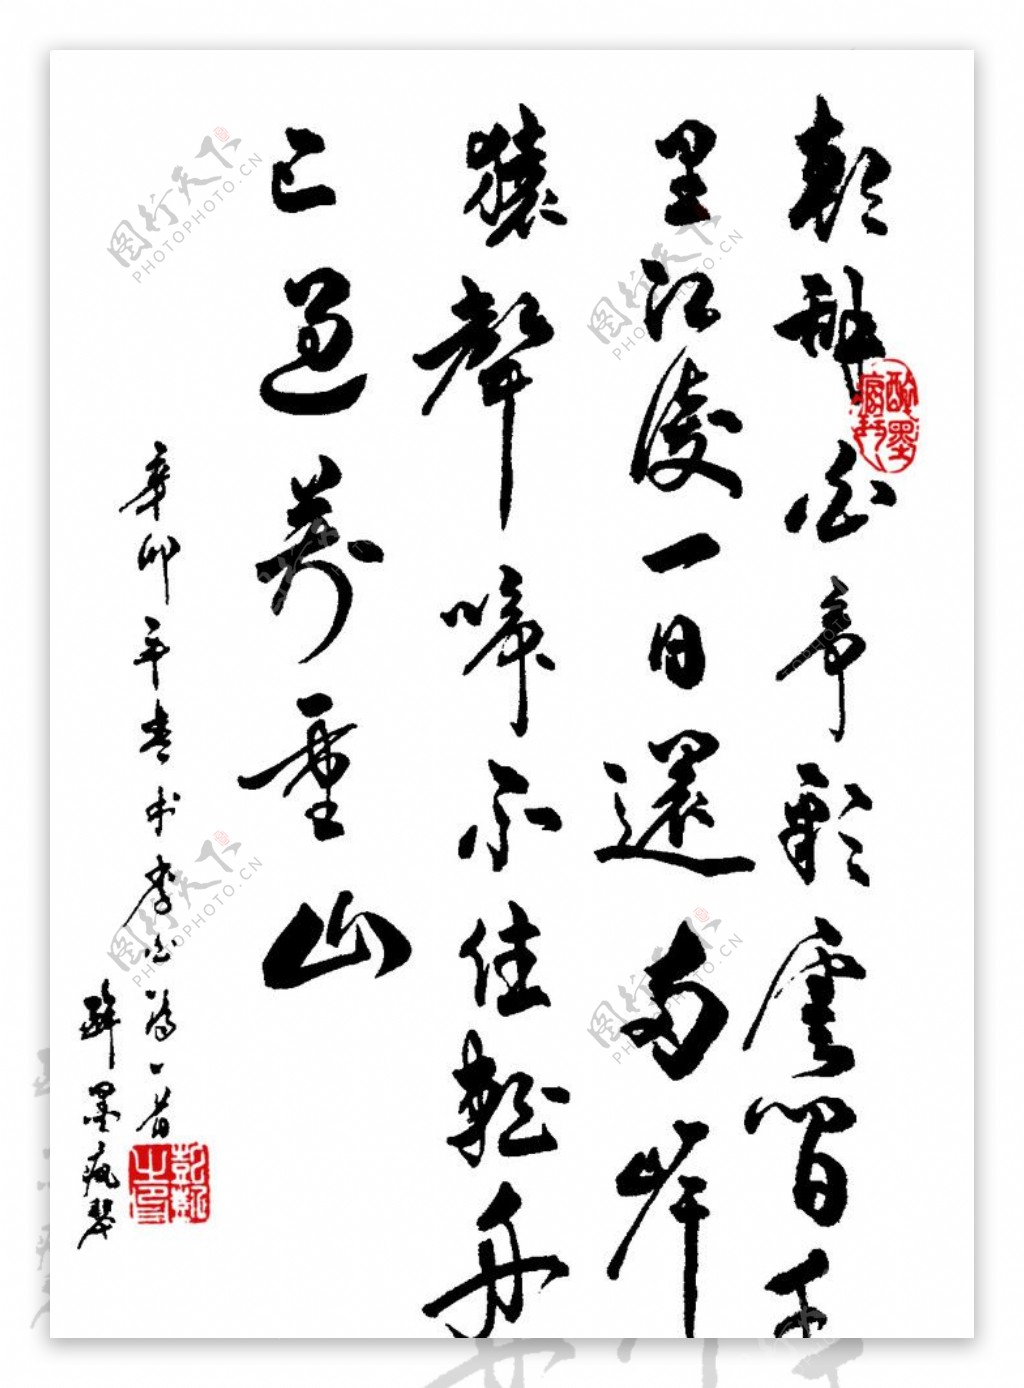 朝辞白帝彩雲間千
里江陵一日還兩岸
猿聲啼不住輕舟
已過萬重山
辛卯年春书李白诗一首
醉墨疯琴
图行天下
PHOTOPHOTO.CN
图行天下
PHOTOPHOTO.CN
图行天下
PHOTOPHOTO.CN
图行天下
PHOTOPHOTO.CN